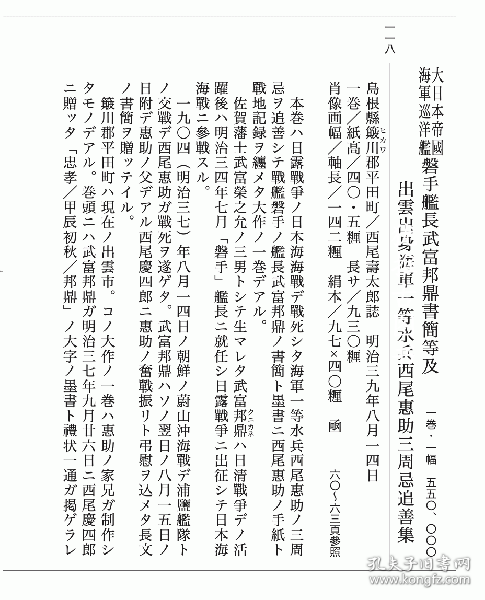 一一八
大日本帝國
海軍巡洋艦
磐手艦長武富邦鼎書簡等及
出雲出身海軍一等水兵西尾惠助三周忌追善集
一巻・一幅 五五〇、〇〇〇
島根縣簸川郡平田町／西尾壽太郎誌 明治三九年八月一四日
ヒカワ
一巻／紙高／四〇・五糎 長サ／九三〇糎
肖像画幅／軸長／一四二糎 絹本／九七×四〇糎 凾 六〇～六三頁參照
本巻ハ日露戰爭ノ日本海海戰デ戰死シタ海軍一等水兵西尾惠助ノ三周
忌ヲ追善シテ戰艦磐手ノ艦長武富邦鼎ノ書簡ト墨書ニ西尾惠助ノ手紙ト
戰地記録ヲ纏メタ大作ノ一巻デアル。
クニカネ
佐賀藩士武富榮之允ノ三男トシテ生マレタ武富邦鼎ハ日清戰爭デノ活
躍後ハ明治三四年七月「磐手」艦長ニ就任シ日露戰爭ニ出征シテ日本海
海戰ニ參戰スル。
一九〇四（明治三七）年八月一四日ノ朝鮮ノ蔚山沖海戰デ浦鹽艦隊ト
ノ交戰デ西尾惠助ガ戰死ヲ遂ゲタ。武富邦鼎ハソノ翌日ノ八月一五日ノ
日附デ惠助ノ父デアル西尾慶四郎ニ惠助ノ奮戰振リト弔慰ヲ込メタ長文
ノ書簡ヲ贈ッテイル。
簸川郡平田町ハ現在ノ出雲市。コノ大作ノ一巻ハ惠助ノ家兄ガ制作シ
タモノデアル。巻頭ニハ武富邦鼎ガ明治三七年九月廿六日ニ西尾慶四郎
ニ贈ッタ「忠孝／甲辰初秋／邦鼎」ノ大字ノ墨書ト禮状一通ガ掲ゲラレ
孔夫子旧书网
www.kongfz.com